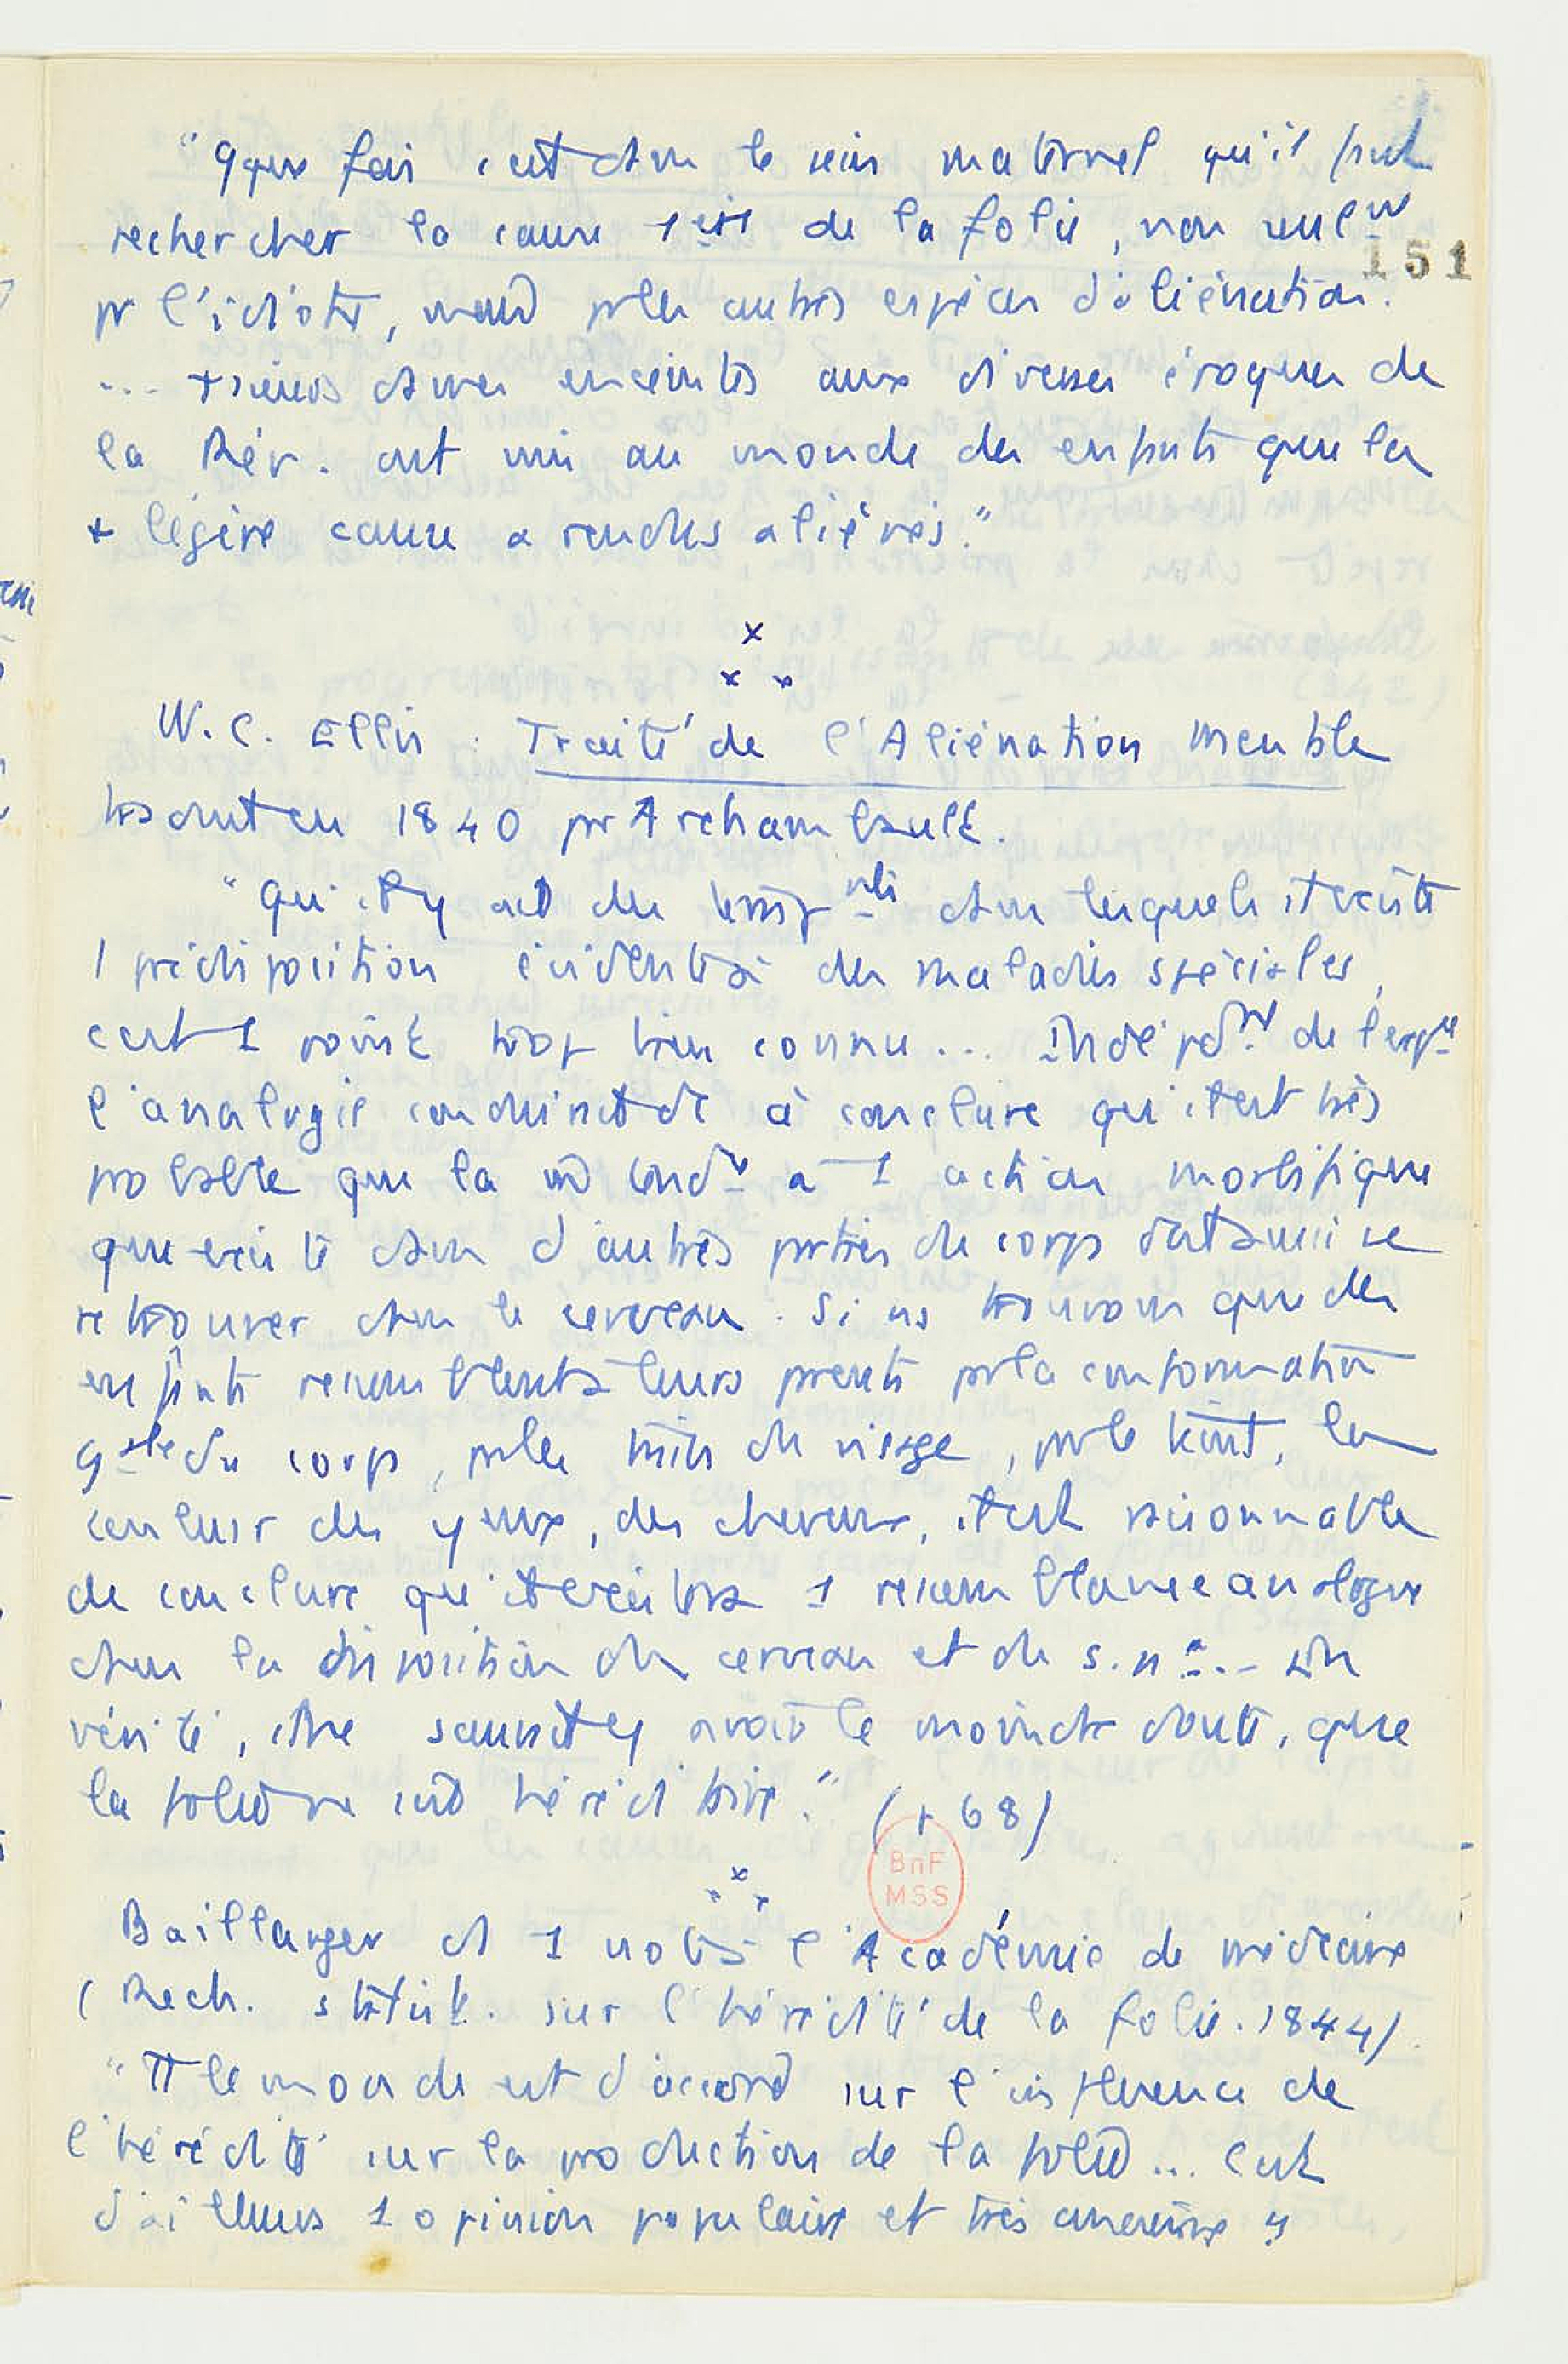 "qque fois c'est dans le sein maternel qu'il faut
rechercher la cause 1ère de la folie, non seulmt
151
pr l'idiotie, mais pr les autres espèces d'aliénation.
... +sieurs dames enceintes aux diverses époques de
la Rév. ont mis au monde des enfants que la
+ légère cause a rendus aliénés."
x
x x
W. C. Ellis. Traité de l'Aliénation mentale
traduit en 1840 pr Archambault.
"Qu'il y ait des temp.nts dans lesquels il existe
1 prédisposition évidente à des maladies spéciales,
c'est 1 point trop bien connu ... Indépdt de l'expce
l'analogie conduirait dc à conclure qu'il est très
probable que la m tendce à 1 action morbifique
que existe dans d'autres parties du corps doit aussi se
retrouver dans le cerveau. Si ns trouvons que des
enfants ressemblent à leurs parents pr la conformation
gale du corps, pr les traits du visage, pr le teint, la
couleur des yeux, des cheveux, il est raisonnable
de conclure qu'il existera 1 ressemblance analogue
dans la disposition du cerveau et du s. nx. – En
vérité, il ne saurait y avoir le moindre doute, que
la folie ne soit héréditaire." (p 68)
x
x x
BnF
MSS
Baillarger ds 1 note à l'Académie de médecine
(Rech. statist. sur l'hérédité de la folie. 1844).
"Tt le monde est d'accord sur l'influence de
l'hérédité sur la production de la folie ... C'est
d'ailleurs 1 opinion populaire et très ancienne "